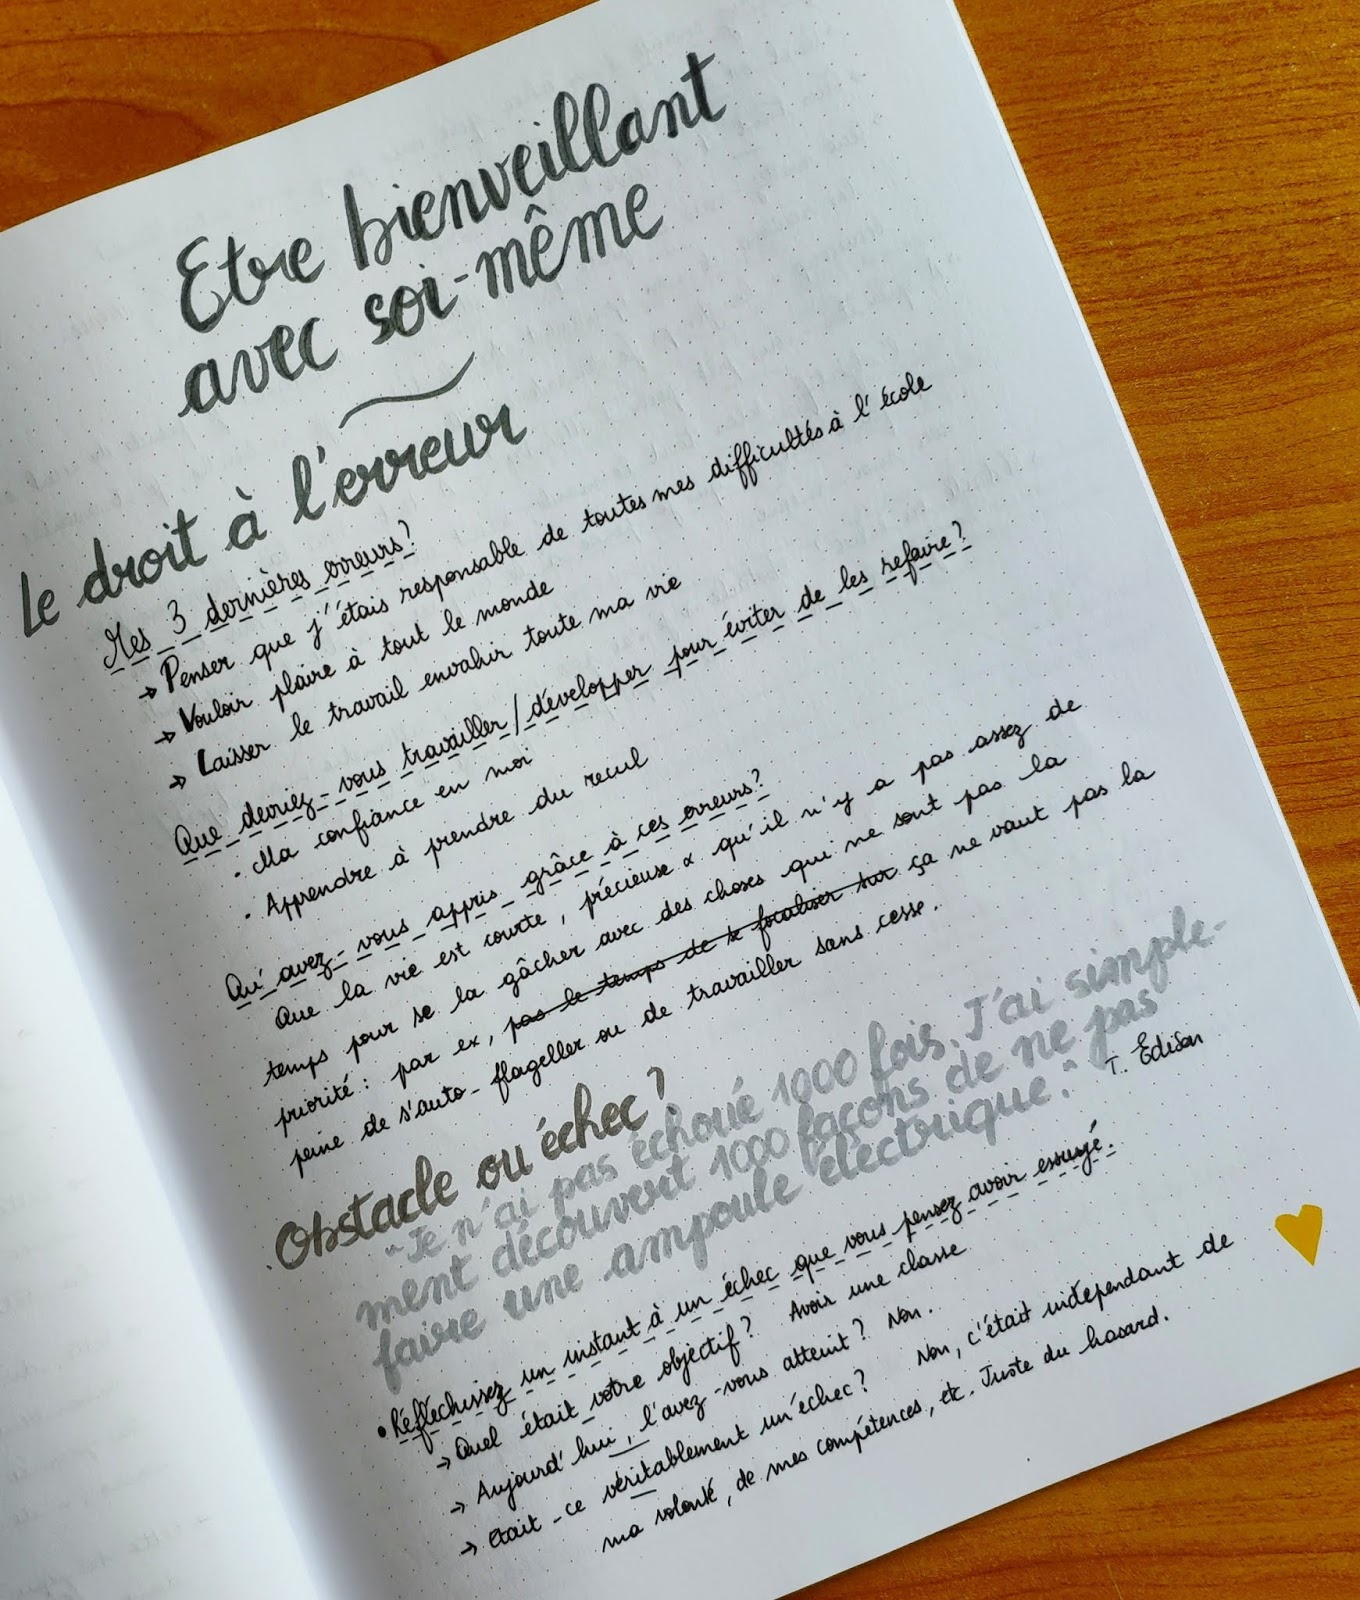 Etre bienveillant
avec soi-même
Le droit à l'erreur
Mes 3 dernières erreurs?
→ Penser que j'étais responsable de toutes mes difficultés à l'école
→ Vouloir plaire à tout le monde
→ Laisser le travail envahir toute ma vie
Que devriez-vous travailler/développer pour éviter de les refaire?
· Ma confiance en moi
· Apprendre à prendre du recul
Qu'avez-vous appris grâce à ces erreurs?
Que la vie est courte, précieuse & qu'il n'y a pas assez de
temps pour se la gâcher avec des choses qui ne sont pas la
priorité: par ex, pas le temps de se focaliser sur ça ne vaut pas la
peine de s'auto-flageller ou de travailler sans cesse.
Obstacle ou échec?
"Je n'ai pas échoué 1000 fois. J'ai simple-
ment découvert 1000 façons de ne pas
faire une ampoule électrique."
T. Edison
• Réfléchissez un instant à un échec que vous pensez avoir essuyé.
→ Quel était votre objectif? Avoir une classe
→ Aujourd'hui, l'avez-vous atteint? Non.
→ Etait-ce véritablement un échec? Non, c'était indépendant de
ma volonté, de mes compétences, etc. Juste du hasard.